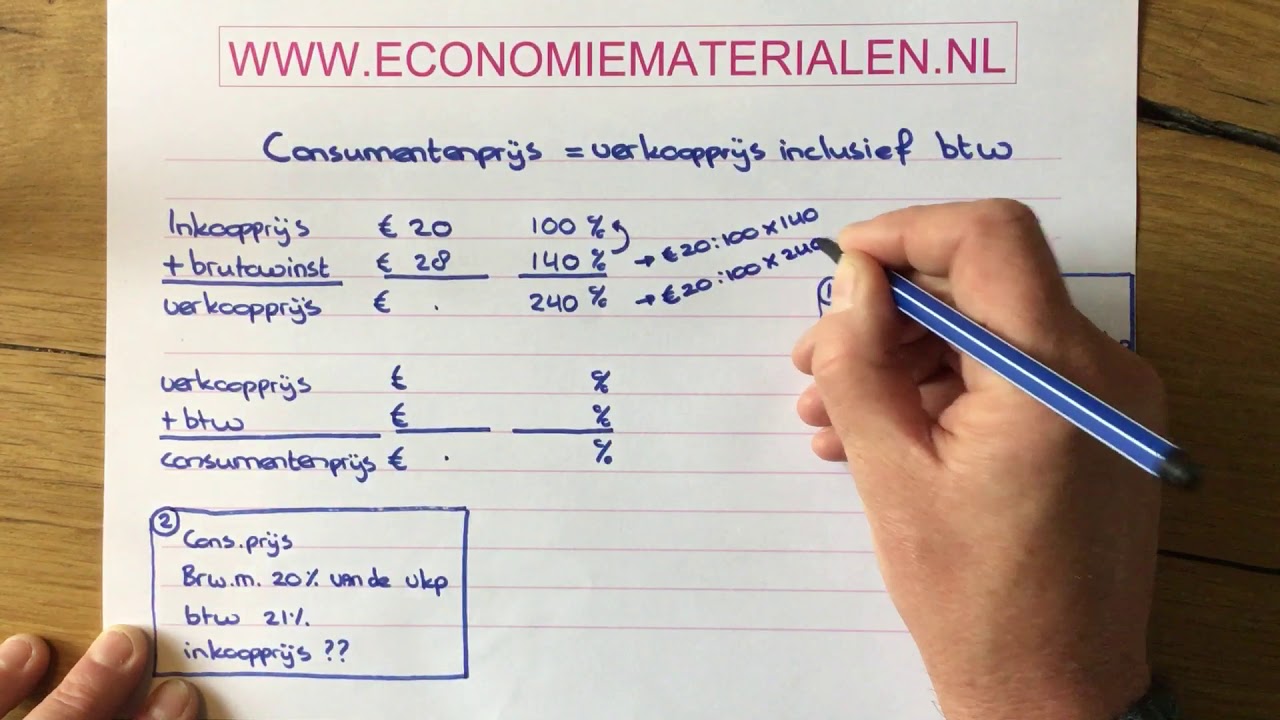 WWW.ECONOMIEMATERIALEN.NL
Consumentenprijs = verkoopprijs inclusief btw
Inkoopprijs € 20 100 % → € 20 : 100 x 140
+ brutowinst € 28 140 % → € 20 : 100 x 240
verkoopprijs € . 240 %
verkoopprijs € %
+ btw € %
consumentenprijs € . %
1
2
Cons.prijs
Brw.m. 20% van de vkp
btw 21%.
inkoopprijs ??